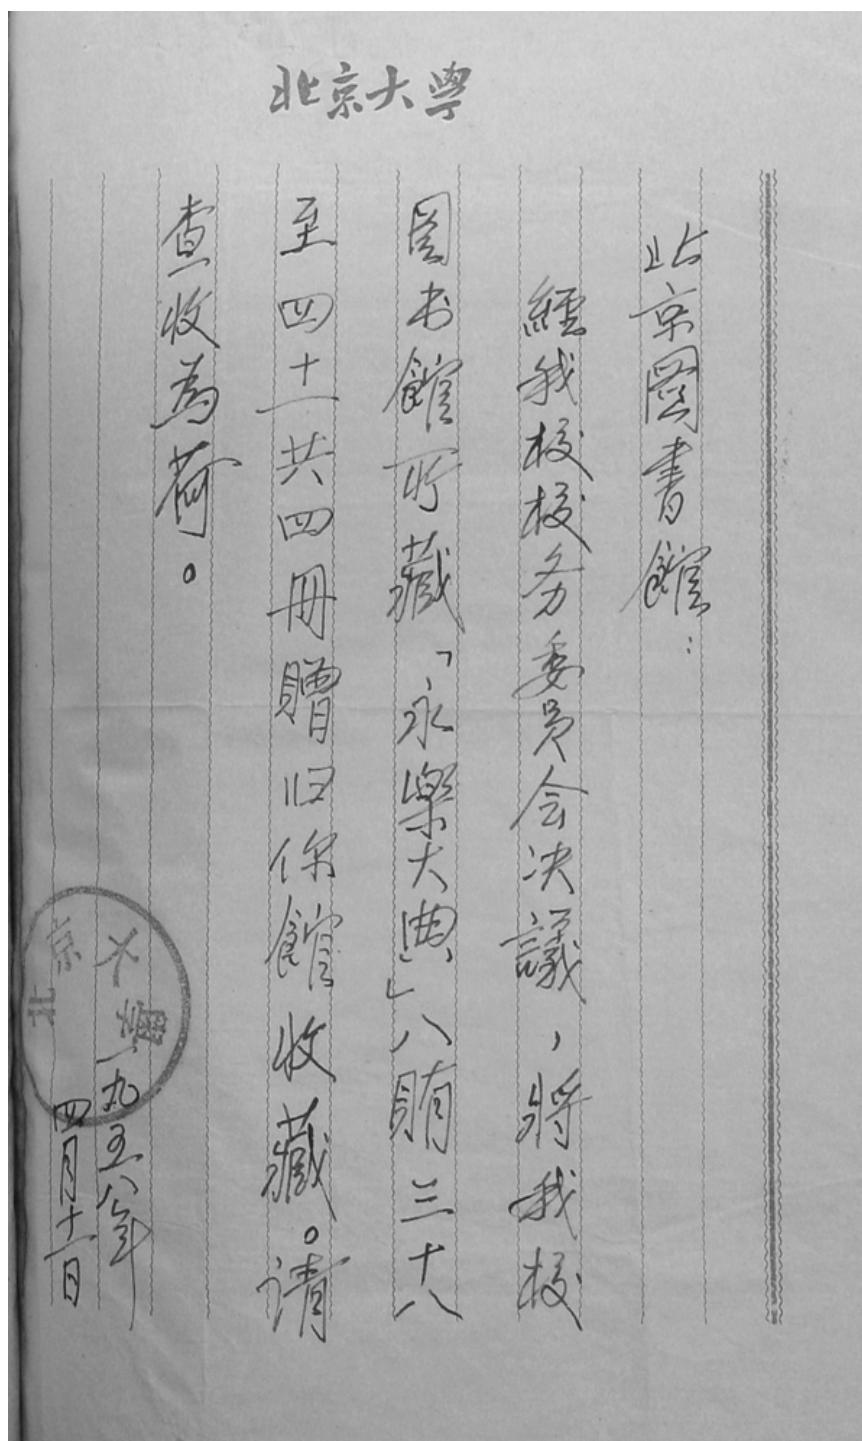 北京大學
北京圖書館：
經我校校务委員会决議，將我校
图书館所藏「永樂大典」八賄三十八
至四十一共四冊贈归你館收藏。请
查收為荷。
一九五八年
四月十一日
北京大學